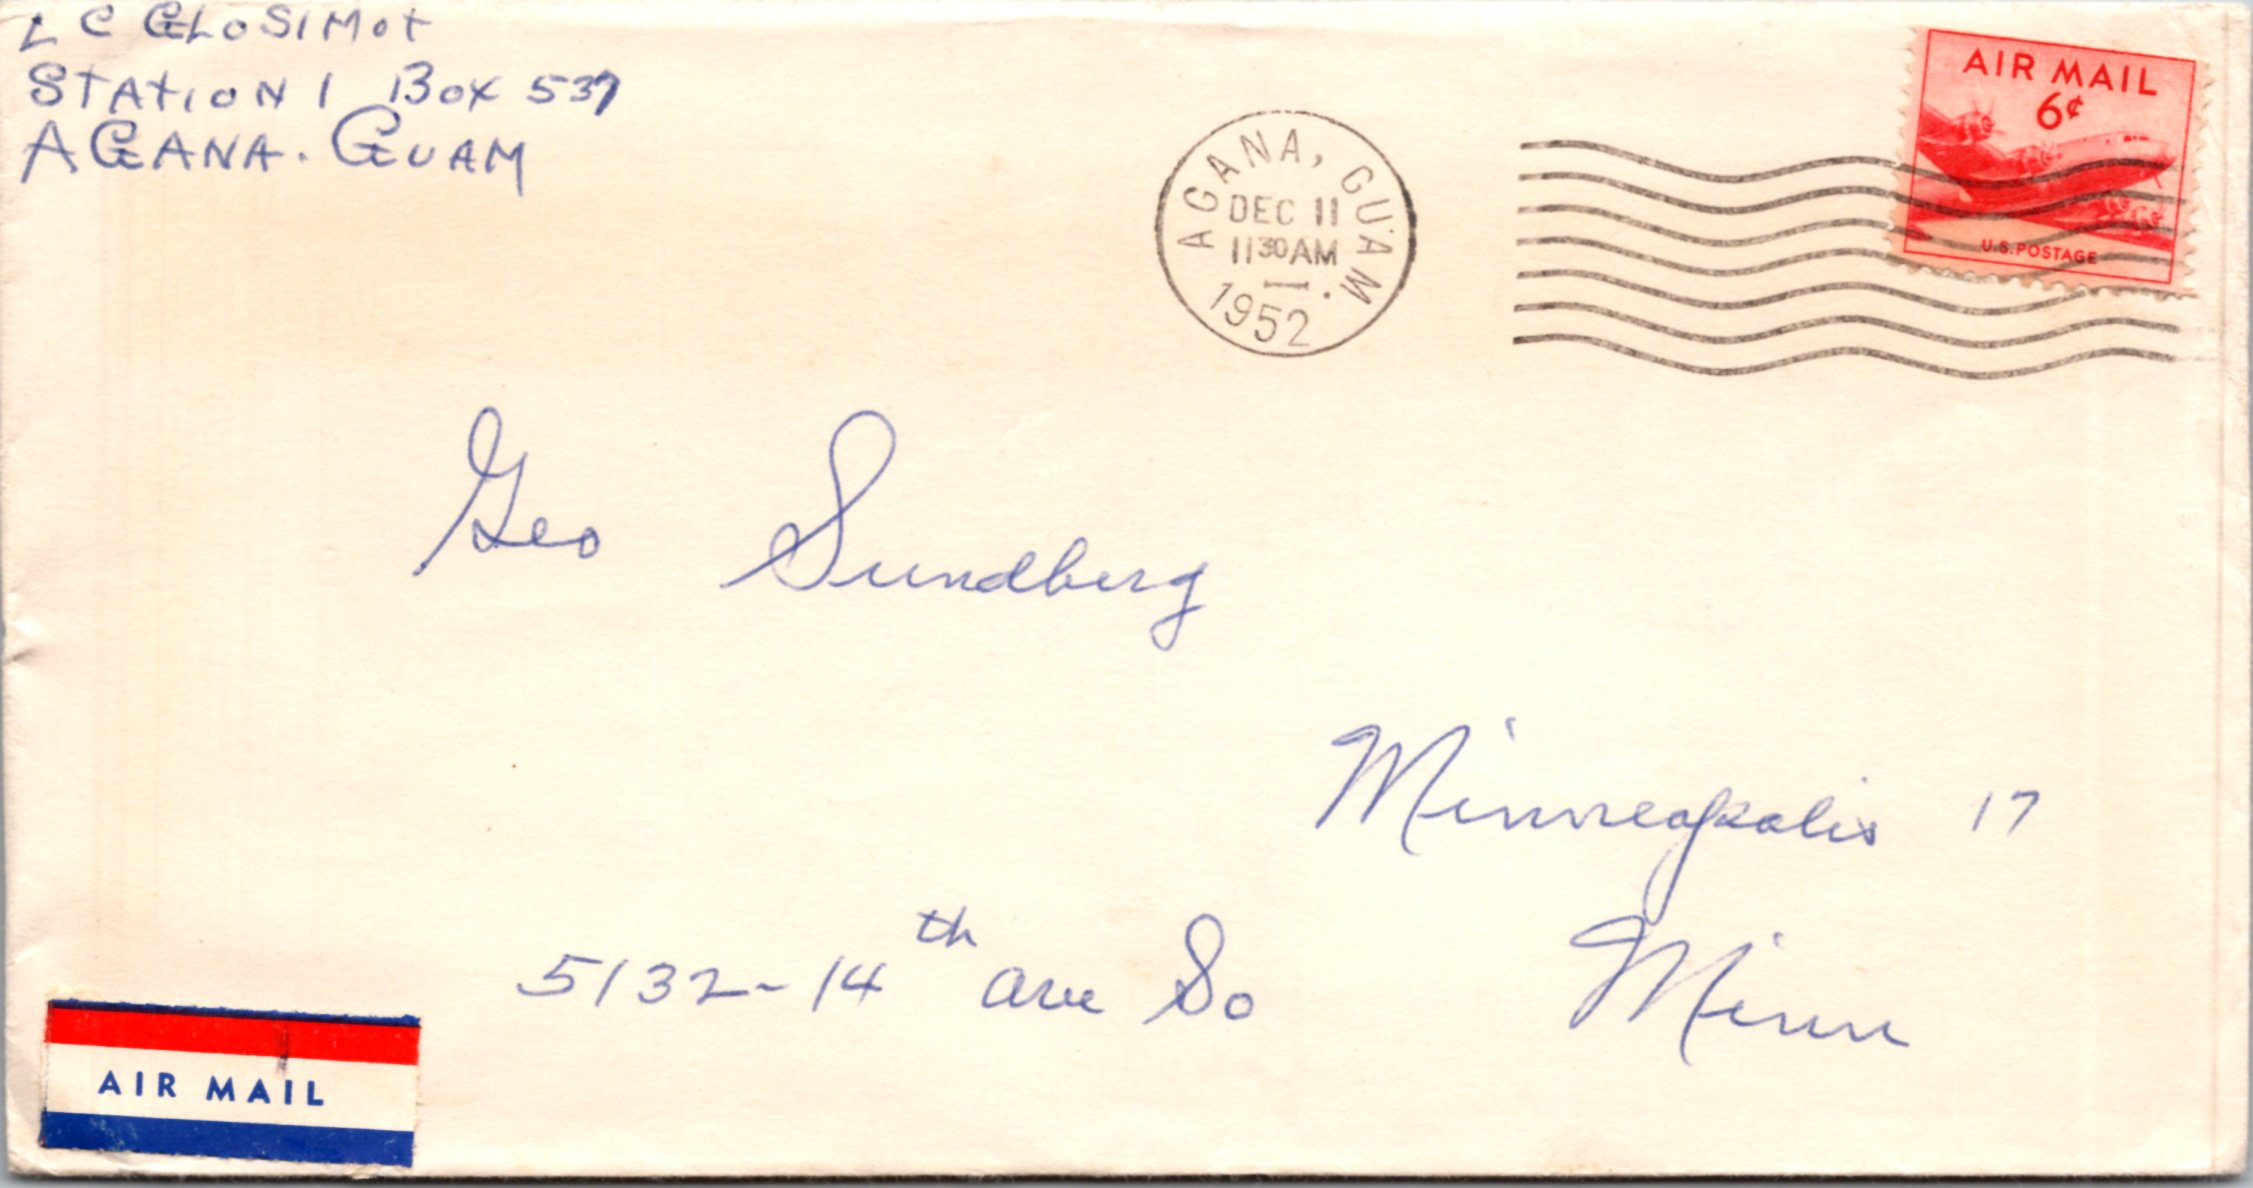 L C GLOSIMOT
STATION 1 BOX 537
AGANA. GUAM
AGANA, GUAM.
DEC 11
1130AM
1952
AIR MAIL
6¢
U.S. POSTAGE
Geo Sundberg
Minneapolis 17
5132-14th Ave So Minn
AIR MAIL